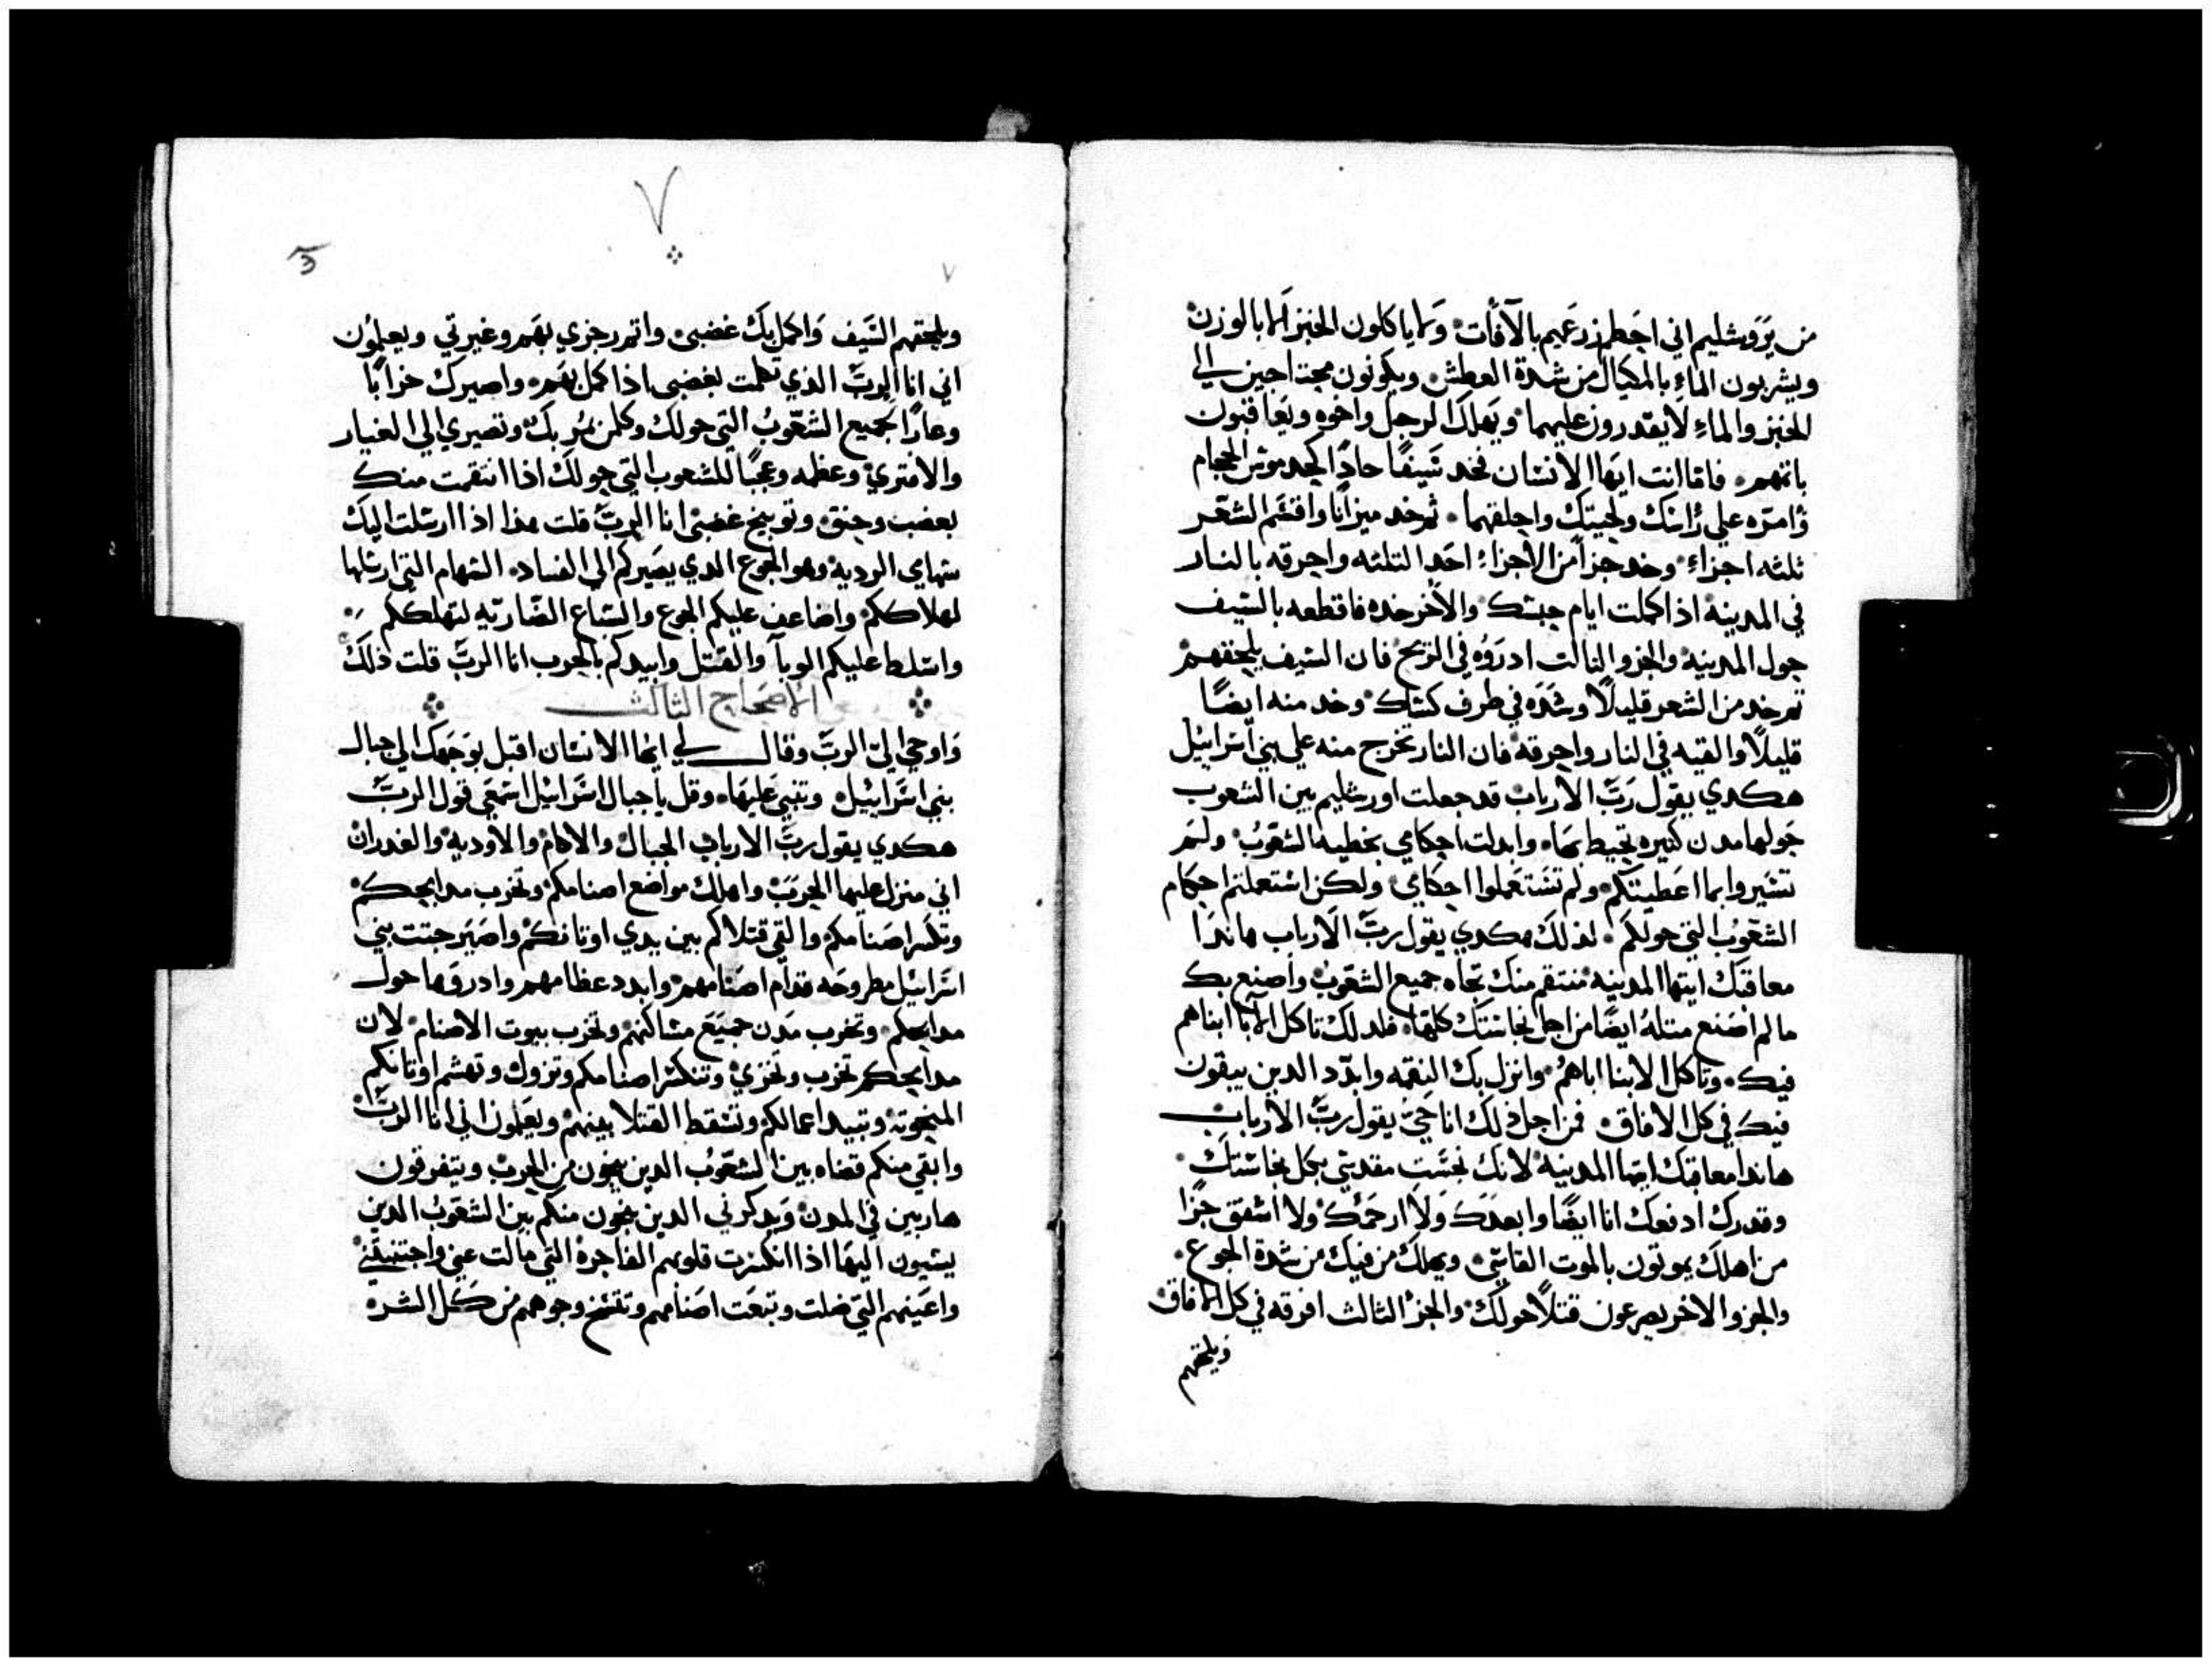 من يروشليم اني احطم زرعهم بالآفات وَلا ياكلون الخبز الا بالوزن
ويشربون الماءِ بالمكيال من شدة العطش ويكونون محتاجين الي
الخبز والماءِ لا يقدرون عليهما ويَهلك الرجل واخوه ويَعاقبون
باثمهم فاما انت ايهَا الانسَان فخد سَيفًا حادًا كحد موس الحجام
وُامرّه علي رُاسَك ولحيتك واحلقهما ثم خد ميزانًا واقسَم الشعَر
ثلثه اجزاءِ وخد جزأ من الاجزاءِ احَد التلثه واحرقه بالنار
في المدينه اذا كملت ايام حبسَك والاخر خده فاقطعه بالسَيف
حول المدينه والجزو التالت ادروُه في الريح فان السَيف يلحقهم
تم خد من الشعر قليلًا وشدَه في طرف كسَاك وخد منه ايضًا
قليلًا والقيه في النار واحرقه فان النار تخرج منه علي بني اسَراييل
هكدي يقول رَبّ الارباب قد جعلت اورشليم بين الشعوب
حَولها مدن كتيره تحيط بهَا وابدلت احكامي بخطيه الشعَوبُ ولم
تسَيروا بما اعَطيتكم ولم تسَتعَملوا احكَامي ولكن استعملتم احكام
الشعَوبُ التي حولكم لذلك هكدي يقول ربّ الارباب هاندَا
معاقبَك ايتها المدينه منتقم منك تجاه جميع الشعوب واصنع بك
ما لم اصَنع متلهُ ايضًا من اجل نجاسَتَك كلهَا فلدلك تاكل الابا ابناهم
فيك وتاكل الابنا اباهُم وانزل بك النقمه وابدّد الدين يبقون
فيك في كل الافاق فمن اجل ذلك انا حَيّ يقول ربّ الارباب
هاندا معاقبك ايتها المدينه لانك نجسَتِ مقدسَي بكل نجاسَتَك
وقدرك ادفعك انا ايضًا وابعدَك وَلا ارحَمَك ولا اشفق جزًا
من اهلك يموتون بالموت القاسَي ويهلك من فيك من شدة الجوع
والجزو الاخر يصرعون قتلًا حولك والجزُ الثالث افرقه في كل الافاق
ويلحقهم
٧
٧
ويلحقهم السَيف وَاكمل بك غضبي واتمم رجزي بهَم وغيرتي ويعلمُون
اني انا الربّ الذي تكلمت بغضبي اذا كمل بهَم واصيرك خرابًا
وعارًا لجميع الشعّوبُ التي حولك وكلمن يمُر بك وتصيري الي الغيار
والافتري وعظه وعجبًا للشعوب التي حولك اذا انتقمت منك
بغضب وحنق وتوبيخ غضبي انا الربّ قلت هذا اذا ارسَلت اليك
سَهامي الرديه وهو الجوع الدي يصَيركم الي الفسَاد السَهام التي ارسَلها
لهلاككم واضاعف عليكم الجوع والسَباع الضاريه لتهلككم
واسَلط عليكم الوبآ والقتل وابيدكم بالحرب انا الربّ قلت ذلك
الاصَحَاح الثالث
وَاوحي اليّ الربّ وقال لي ايها الانسَان اقبل بوَجهك الي جبال
بني اسَراييل وتنبي عَليهَا وقل يا جبال اسَراييل اسَمَعَي قول الربّ
هكدي يقول ربّ الارباب للجبال والاكام والاوديه والغدران
اني منزل عليها الحرَبَ واهلك مواضع اصنامكم وتخرب مدابحكم
وتكسَر اصَنامكم والقي قتلاكم بين يدي اوتانكم واصَيَر جتت بني
اسَراييل مطروحَه قدام اصَنامهم وابدد عظامهم وادروها حول
مدابحكم وتخرب مَدن جميَع مسَاكنهم وتخرب بيوت الاصنام لان
مدابحكم تخرب وتخزي وتنكسَر اصنامكم وتزول وتهشم اوتانكم
المنحوته وتبيد اعمالكم وتسَقط القتلا بينهم ويعَلمون اني انا الربّ
وابقي منكم قضاه بين الشعّوبُ الدين ينجون من الحرب ويتفرقون
هاربين في المدن ويدكرني الدين ينجون منكم بين الشعّوبُ الدين
يسَبون اليهَا اذا انكسَرت قلوبهم الفاجره التي مالت عني واجتنبتني
واعَينهم التي ضلت وتبعَت اصَنامهم وتفسَخ وجوههم من كل الشره